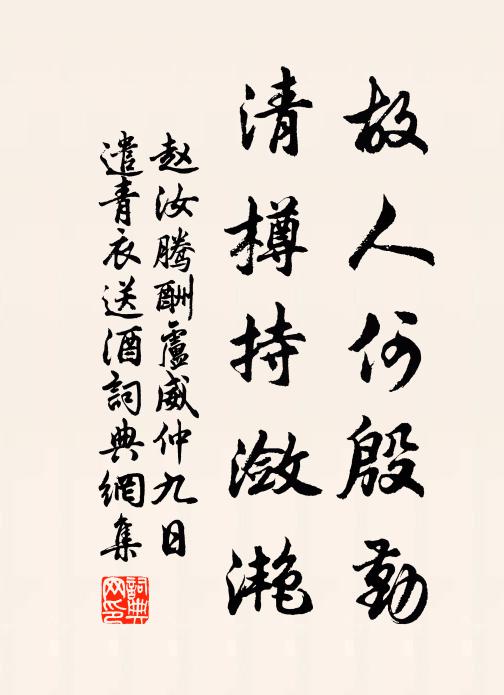 故人何殷勤
清樽持潋滟
赵汝腾酬盧威仲九日
遣青衣送酒詞典網集
詞典網印